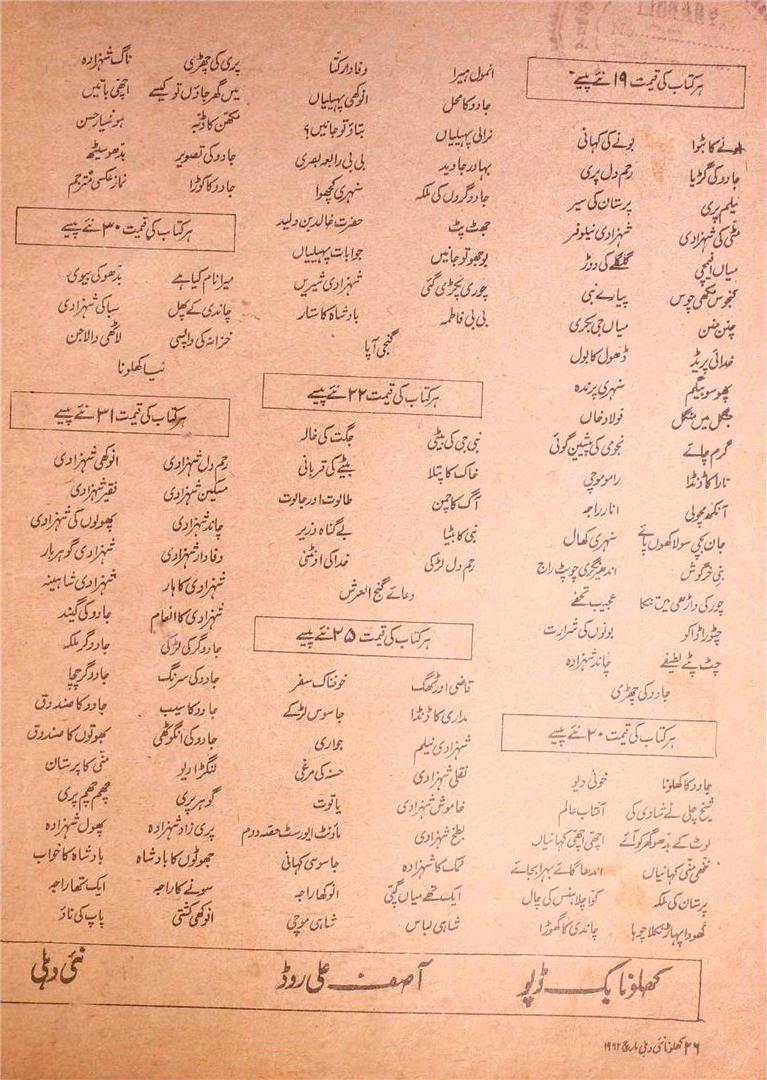 ہر کتاب کی قیمت ۱۹ نئے پیسے
بونے کا بٹوا بونے کی کہانی
جادو کی گڑیا رحم دل پری
نیلم پری پرستان کی سیر
مٹی کی شہزادی شہزادی نیلوفر
میاں افیمچی گلگلے کی دوڑ
کنجوس مکھی چوس پیارے نبی
چنن منن میاں جی بکری
خدائی پریڈ ڈھول کا بول
پھوسو بیگم سنہری پرندہ
جنگل میں منگل فولاد خاں
گرم چائے نجومی کی پیشین گوئی
تارا کا ڈنڈا رامو موچی
آنکھ مچولی انار راجہ
جان بچی سو لاکھوں پائے سنہری کھال
بنی خرگوش اندھیر نگری چوپٹ راج
چور کی داڑھی میں تنکا عجیب تحفے
چٹورا ڈاکو بونوں کی شرارت
چٹ پٹے لطیفے چاند شہزادہ
جادو کی چھڑی
ہر کتاب کی قیمت ۲۰ نئے پیسے
جادو کا کھلونا خونی دیو
شیخ چلی نے شادی کی آفتاب عالم
لوٹ کے بدھو گھر کو آئے اچھی اچھی کہانیاں
ننھی منی کہانیاں اندھا گائے بہرا بجائے
پرستان کی ملکہ کوا چلا ہنس کی چال
کھودا پہاڑ نکلا چوہا چاندی کا گھوڑا
انمول ہیرا وفادار کتا
جادو کا محل انوکھی پہیلیاں
نرالی پہیلیاں بتاؤ تو جانیں؟
بہادر جاوید بی بی رابعہ بصری
جادوگروں کی ملکہ سنہری کچھوا
جھٹ پٹ حضرت خالد بن ولید
بوجھو تو جانیں جوابات پہیلیاں
چوری پکڑی گئی شہزادی شیریں
بی بی فاطمہ بادشاہ کا ستار
گنجی آپا
ہر کتاب کی قیمت ۲۲ نئے پیسے
نبی جی کی بیٹی جگت کی خالہ
خاک کا پتلا بیٹے کی قربانی
آگ کا چمن طالوت اور جالوت
نبی کا بیٹا بے گناہ وزیر
رحم دل لڑکی خدا کی اونٹنی
دعائے گنج العرش
ہر کتاب کی قیمت ۲۵ نئے پیسے
قاضی اور ٹھگ خوفناک سفر
مداری کا ڈنڈا جاسوس لڑکے
شہزادی نیلم جواری
نقلی شہزادی حسنہ کی مرغی
خاموش شہزادی یاقوت
بطخ شہزادی ماؤنٹ ایورسٹ حصہ دوم
نمک کا شہزادہ جاسوسی کہانی
ایک تھے میاں گپی انوکھا راجہ
شاہی لباس شاہی موچی
پری کی چھڑی ناگ شہزادہ
میں گھر جاؤں تو کیسے اچھی باتیں
مکھن کا ڈبہ ہونہار حسن
جادو کی تصویر بدھو سیٹھ
جادو کا کوڑا نماز عکسی مترجم
ہر کتاب کی قیمت ۳۰ نئے پیسے
میرا نام کیا ہے بدھو کی بیوی
چاندی کے پھل سبا کی شہزادی
خزانہ کی واپسی لاٹھی والا جن
نیا کھلونا
ہر کتاب کی قیمت ۳۱ نئے پیسے
رحم دل شہزادی انوکھی شہزادی
مسکین شہزادی فقیر شہزادی
چاند شہزادی پھولوں کی شہزادی
وفادار شہزادی شہزادی گوہر بار
شہزادی کا ہار شہزادی شاہینہ
شہزادی کا انعام جادو کی گیند
جادوگر کی لڑکی جادوگر ملکہ
جادو کی سرنگ جادوگر چچا
جادو کا سیب جادو کا صندوق
جادو کی انگوٹھی بھوتوں کا صندوق
لنگڑا دیو منی کا پرستان
گوہر پری چھم چھم پری
پری زاد شہزادہ پھول شہزادہ
جھوٹوں کا بادشاہ بادشاہ کا خواب
سونے کا راجہ ایک تھا راجہ
انوکھی کشتی پاپ کی ناؤ
کھلونا بک ڈپو آصف علی روڈ نئی دہلی
۲۶ کھلونا نئی دہلی مارچ ۱۹۶۲
LIBRARY
No.